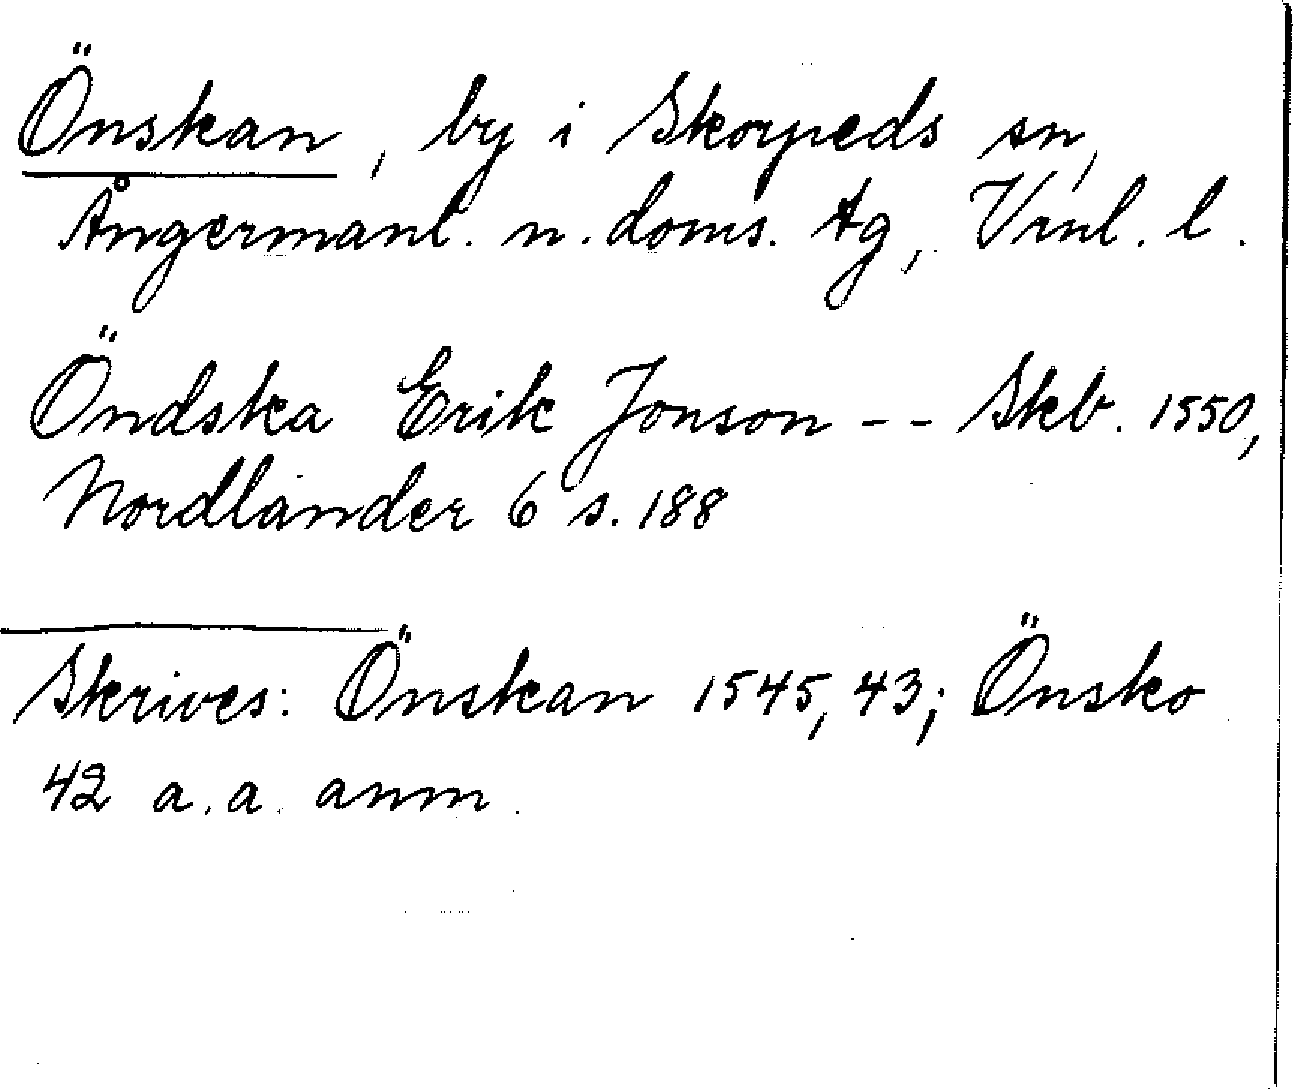 Önskan, by i Skorpeds sn,
Ångermanl. n. doms. tg, Vrnl. l.
Öndska Erik Jonson -- Skb. 1550,
Nordlander 6 s. 188
Skrives: Önskan 1545, 43; Önsko
42 a. a. anm.